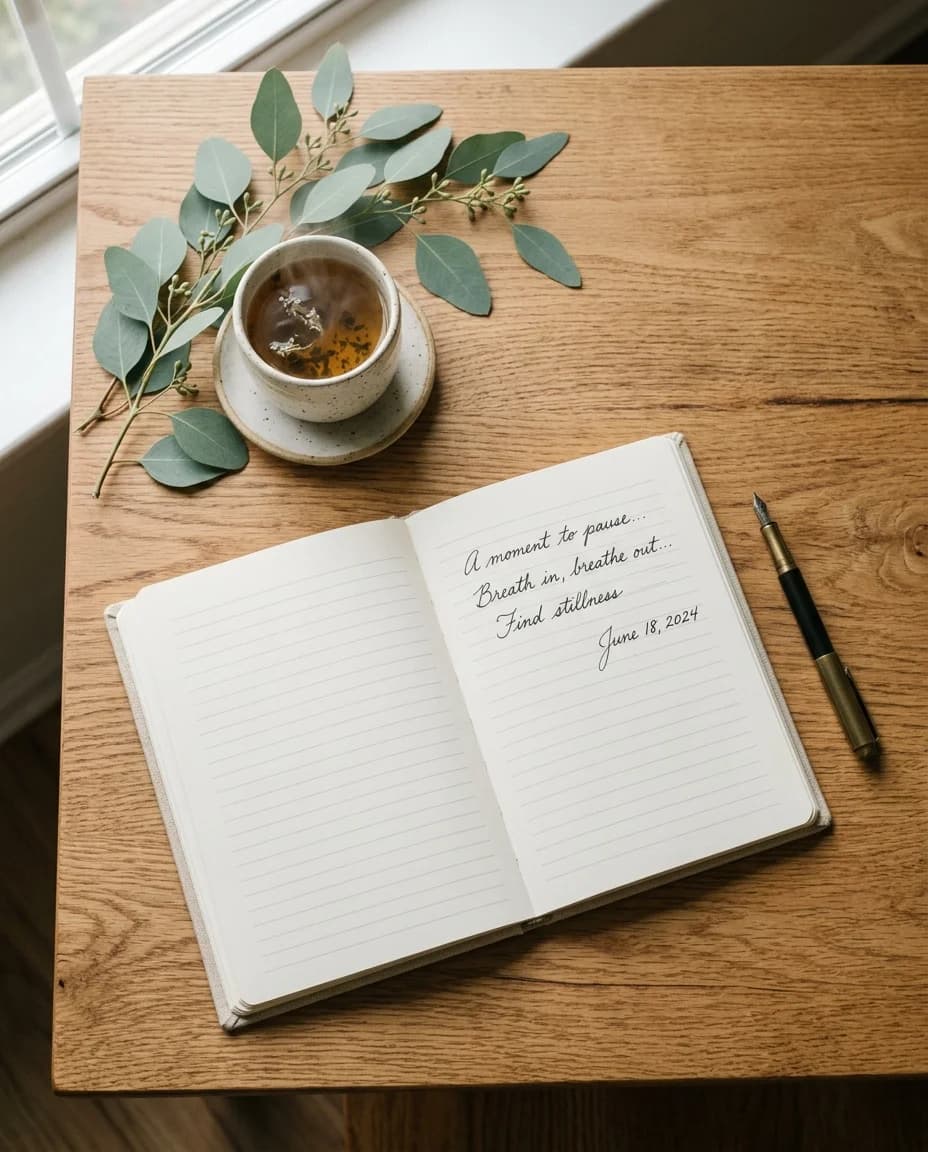 A moment to pause...
Breath in, breathe out...
Find stillness
June 18, 2024